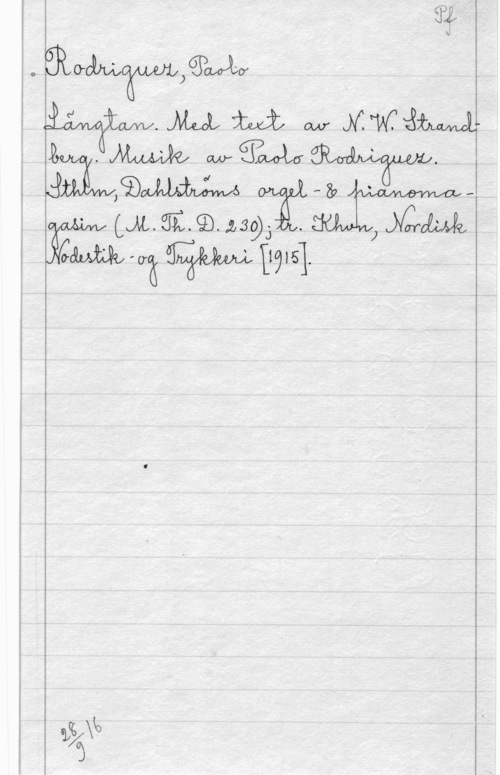 Pf
Rodriguez, Paolo
Långtan. Med text av N. W. Strand-
berg. Musik av Paolo Rodriguez.
Sthlm, Dahlströms orgel- & pianoma-
gasin (M. Th. D. 230); tr. Khvn, Nordisk
Nodestik- og Trykkeri [1915].
28/9 16